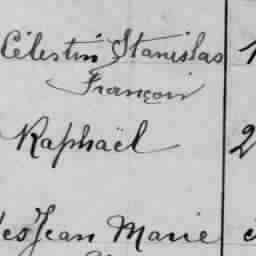 Célestin Stanislas
François
Raphaël 2
Jean Marie